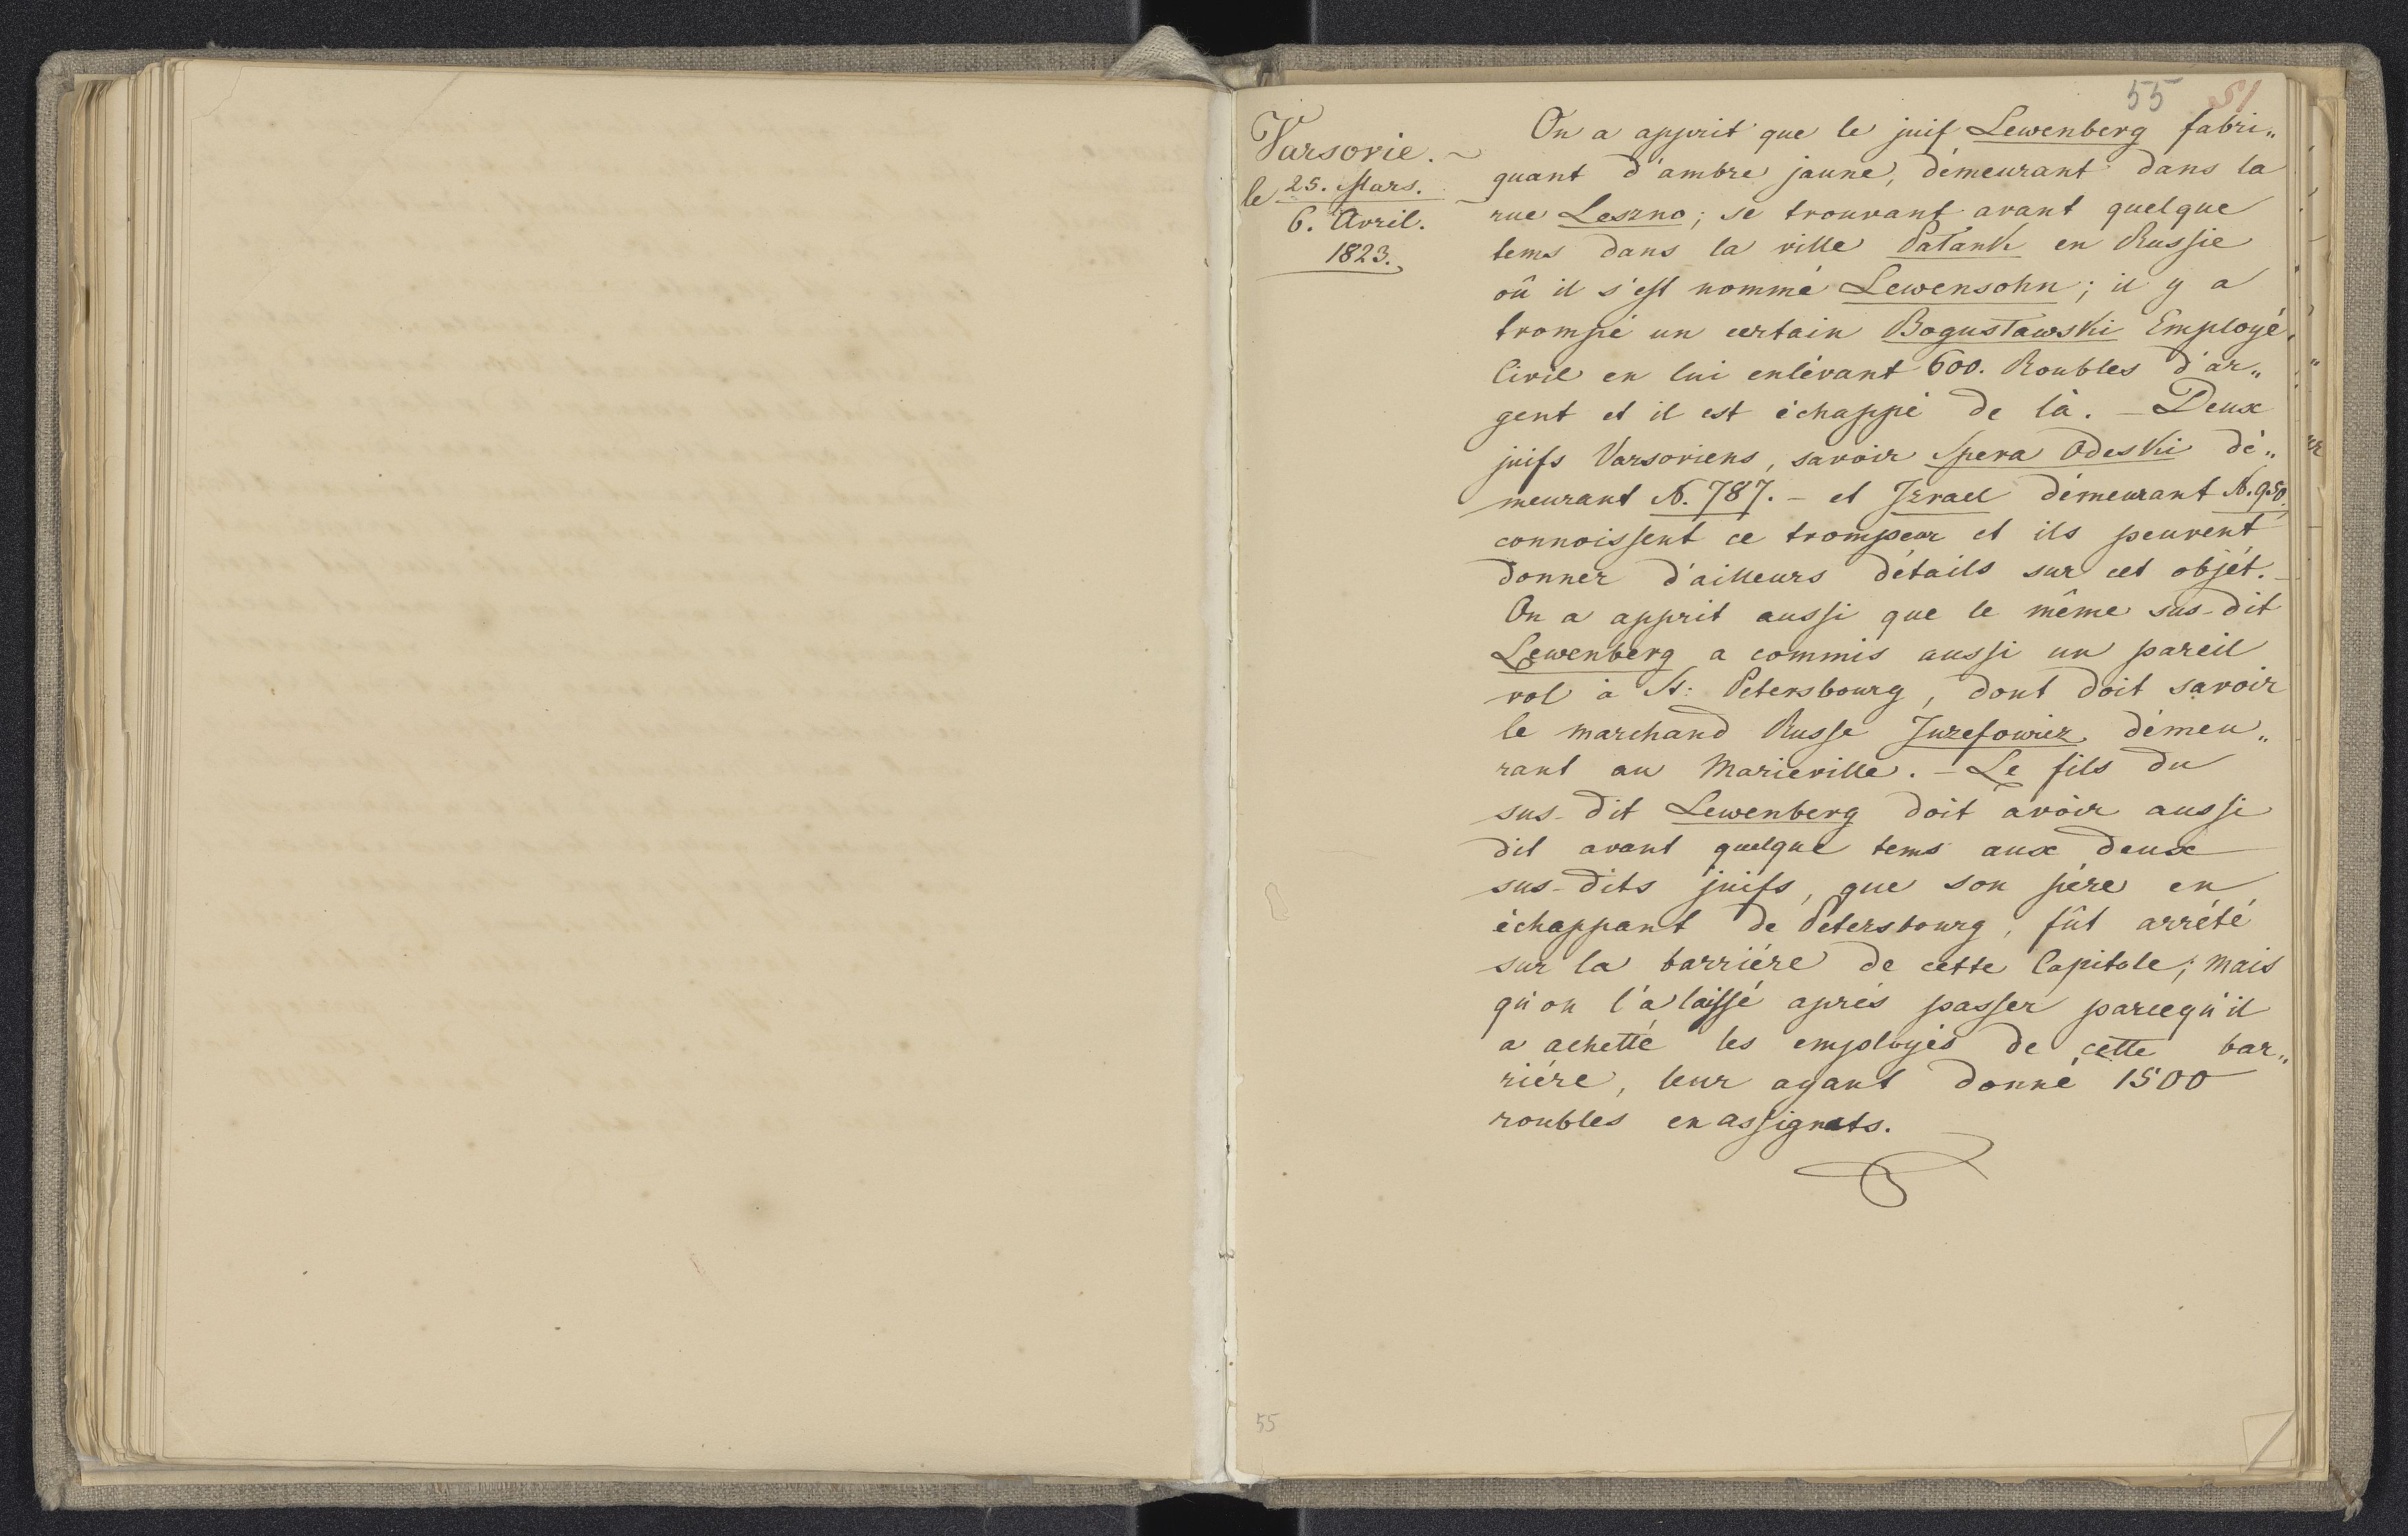 55 51
Varsovie.
le 25. Mars.
6. Avril.
1823.
On a apprit que le juif Lewenberg fabri„
quant d'ambre jaune, démeurant dans la
rue Leszno; se trouvant avant quelque
tems dans la ville Połank en Russie
où il s'est nommé Lewensohn; il y a
trompé un certain Bogusławski Employé
Civil en lui enlévant 600. Roubles d'ar„
gent et il est échappé de là. – Deux
juifs Varsoviens, savoir Spera Odeski dé„
meurant N. 787. – et Izrael démeurant N. 950.
connoissent ce trompeur et ils peuvent
donner d'ailleurs détails sur cet objét. –
On a apprit aussi que le même sus-dit
Lewenberg a commis aussi un pareil
vol à St: Petersbourg, dont doit savoir
le marchand Russe Juzefowicz démeu„
rant au Marieville. – Le fils du
sus-dit Lewenberg doit avoir aussi
dit avant quelque tems aux deux
sus-dits juifs, que son père en
échappant de Petersbourg, fût arrété
sur la barriére de cette Capitale; mais
qu'on l'a laissé aprés passer parcequ'il
a achetté les employés de cette bar„
riére, leur ayant donné 1500
roubles en assignats.
55